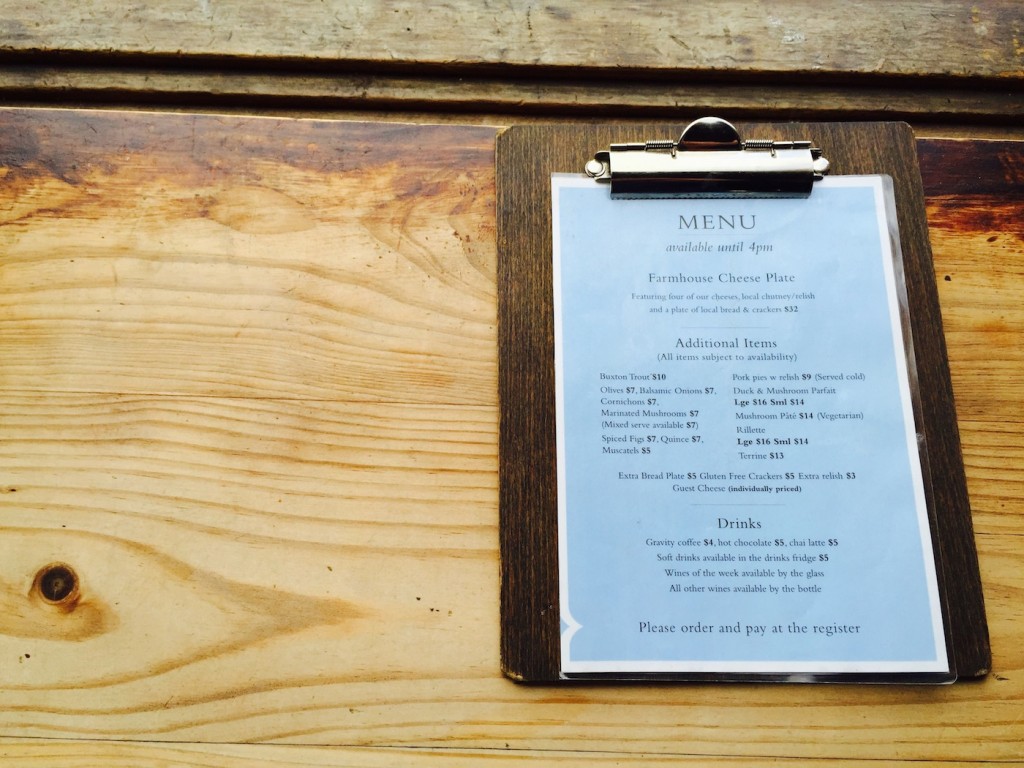 MENU
available until 4pm
Farmhouse Cheese Plate
Featuring four of our cheeses, local chutney/relish
and a plate of local bread & crackers $32
Additional Items
(All items subject to availability)
Buxton Trout $10
Olives $7, Balsamic Onions $7,
Cornichons $7,
Marinated Mushrooms $7
(Mixed serve available $7)
Spiced Figs $7, Quince $7,
Muscatels $5
Pork pies w relish $9 (Served cold)
Duck & Mushroom Parfait
Lge $16 Sml $14
Mushroom Pâté $14 (Vegetarian)
Rillette
Lge $16 Sml $14
Terrine $13
Extra Bread Plate $5 Gluten Free Crackers $5 Extra relish $3
Guest Cheese (individually priced)
Drinks
Gravity coffee $4, hot chocolate $5, chai latte $5
Soft drinks available in the drinks fridge $5
Wines of the week available by the glass
All other wines available by the bottle
Please order and pay at the register